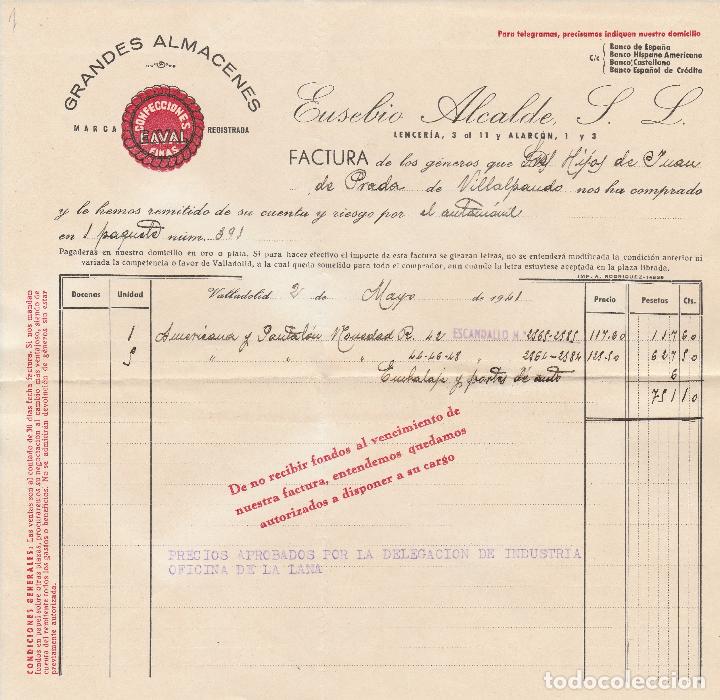 1
Para telegramas, precisamos indiquen nuestro domicilio
GRANDES ALMACENES
MARCA REGISTRADA
CONFECCIONES
EAVAL
FINAS
C/c
Banco de España
Banco Hispano Americano
Banco Castellano
Banco Español de Crédito
Eusebio Alcalde, S. L.
LENCERÍA, 3 al 11 y ALARCÓN, 1 y 3
FACTURA de los géneros que Hijos de Juan
de Prada de Villalpando nos ha comprado
y le hemos remitido de su cuenta y riesgo por el automóvil
en 1 paquete núm. 391
Pagaderas en nuestro domicilio en oro o plata. Si para hacer efectivo el importe de esta factura se giraran letras, no se entenderá modificada la condición anterior ni
variada la competencia o favor de Valladolid, a la cual queda sometido para todo el comprador, aun cuando la letra estuviese aceptada en la plaza librada.
IMP. A. RODRIGUEZ-14829
Docenas Unidad Valladolid 2 de Mayo de 1941 Precio Pesetas Cts.
1 Americana y Pantalón Novedad R. 42 ESCANDALLO N. 2865-2885 117.60 117 60
5 " " " 44-46-48 " 2864-2884 627 50
Embalaje y portes de auto 6
751 10
De no recibir fondos al vencimiento de
nuestra factura, entendemos quedamos
autorizados a disponer a su cargo
PRECIOS APROBADOS POR LA DELEGACION DE INDUSTRIA
OFICINA DE LA LANA
CONDICIONES GENERALES: Las ventas son al contado de 30 días fecha factura. Si nos mandan
fondos en papel sobre otras plazas, procuraremos su negociación al cambio más ventajoso, siendo de
cuenta del remitente todos los gastos o beneficios. No se admitirán devolución de géneros sin estar
previamente autorizada.
todocoleccion.net